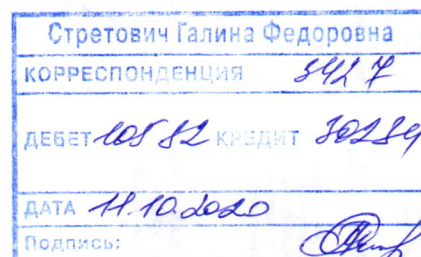 Стретович Галина Федоровна
КОРРЕСПОНДЕНЦИЯ 3427
ДЕБЕТ 10582 КРЕДИТ 30234
ДАТА 11.10.2020
Подпись: